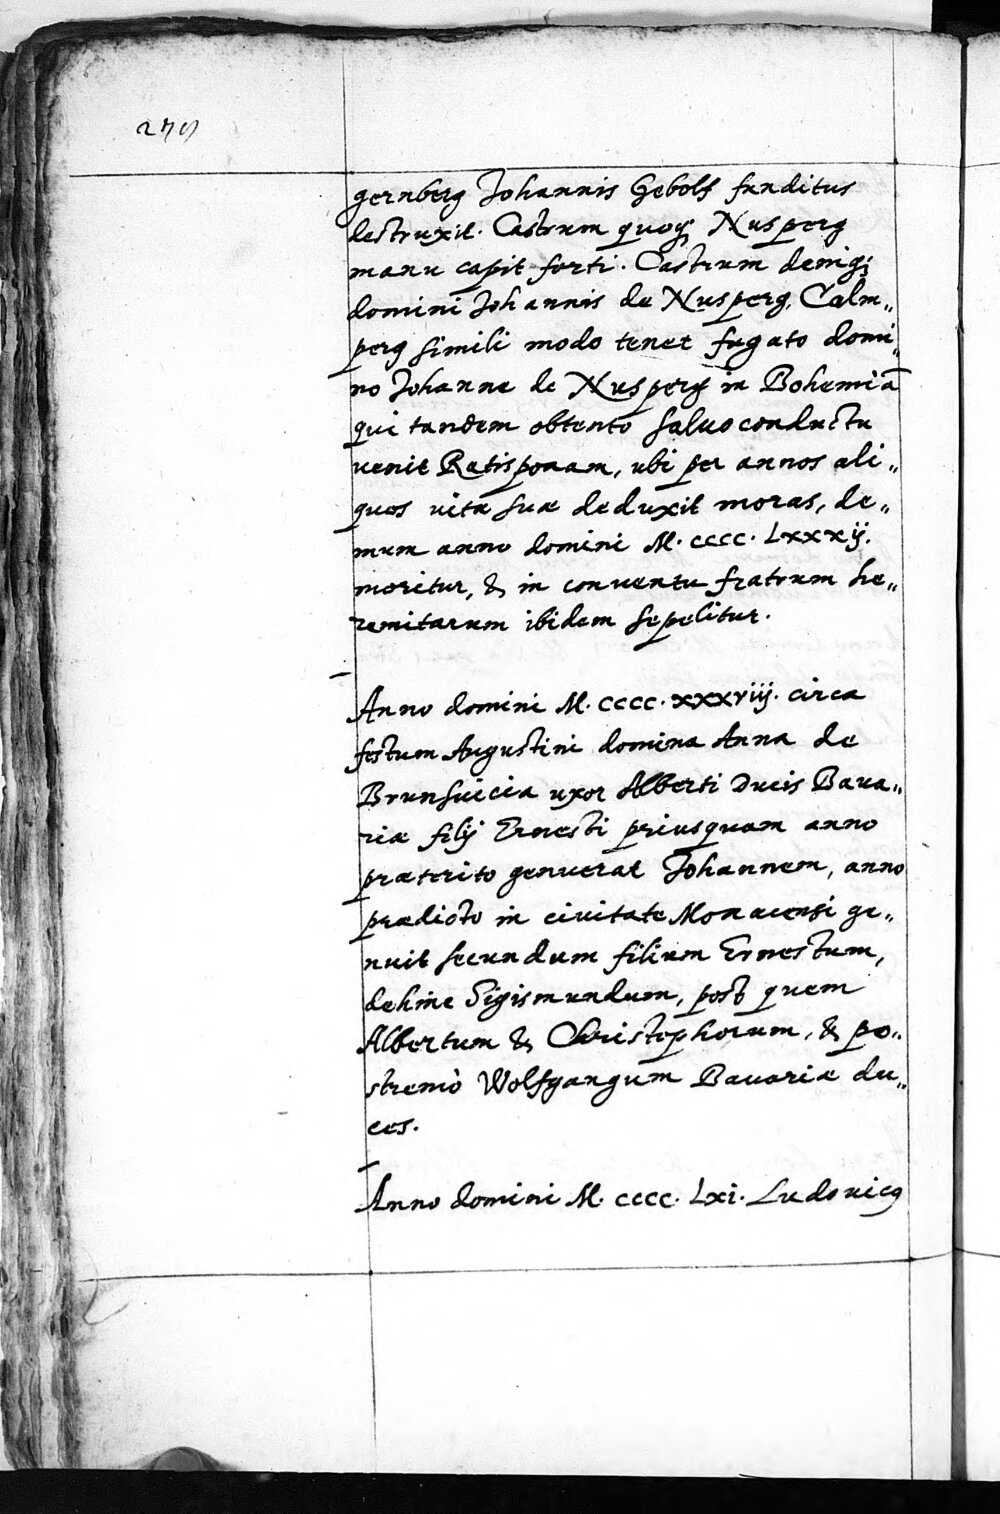 279
gernberg Johannis Gebolf funditus
destruxit. Castrum quoq; Nusperg
manu capit forti. Castrum deniq;
domini Johannis de Nusperg, Calm„
perg simili modo tenet fugato domi„
no Johanne de Nusperg in Bohemiā
qui tandem obtento saluo conductu
uenit Ratisponam, ubi per annos ali„
quos uitæ suæ deduxit moras, de„
mum anno domini M. cccc. Lxxxij.
moritur, & in conuentu fratrum he„
remitarum ibidem sepelitur.
Anno domini M. cccc. xxxviij. circa
festum Augustini domina Anna de
Brunsuicia uxor Alberti Ducis Baua„
riæ filij Ernesti priusquam anno
præterito genuerat Johannem, anno
prædicto in ciuitate Monacensi ge„
nuit secundum filium Ernestum,
dehinc Sigismundum, post quem
Albertum & Christophorum, & po„
stremò Wolfgangum Bauariæ du„
ces.
Anno domini M. cccc. Lxi. Ludouicꝰ